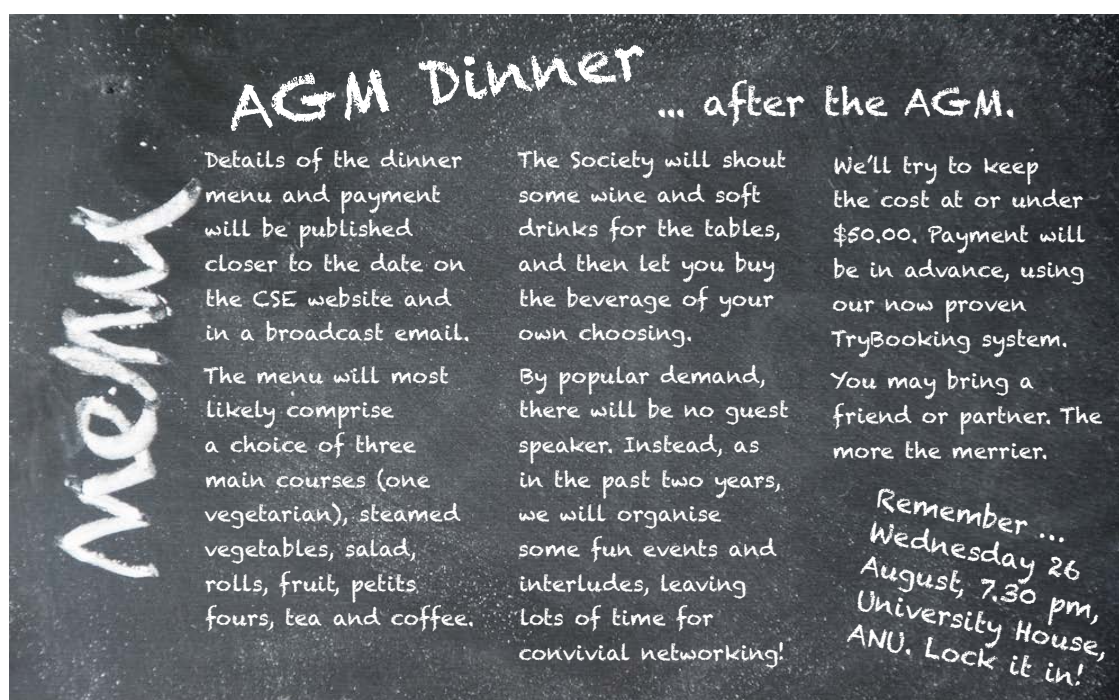 Menu
AGM Dinner
... after the AGM.
Details of the dinner
menu and payment
will be published
closer to the date on
the CSE website and
in a broadcast email.
The menu will most
likely comprise
a choice of three
main courses (one
vegetarian), steamed
vegetables, salad,
rolls, fruit, petits
fours, tea and coffee.
The Society will shout
some wine and soft
drinks for the tables,
and then let you buy
the beverage of your
own choosing.
By popular demand,
there will be no guest
speaker. Instead, as
in the past two years,
we will organise
some fun events and
interludes, leaving
lots of time for
convivial networking!
We'll try to keep
the cost at or under
$50.00. Payment will
be in advance, using
our now proven
TryBooking system.
You may bring a
friend or partner. The
more the merrier.
Remember ...
Wednesday 26
August, 7.30 pm,
University House,
ANU. Lock it in!